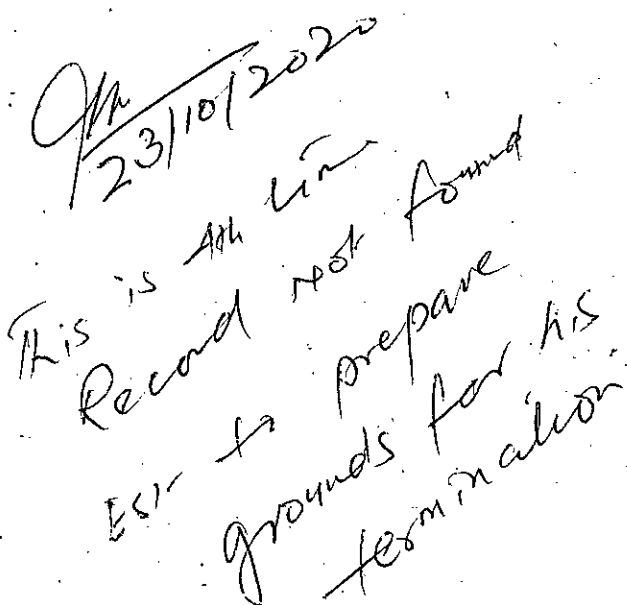 23/10/2020
This is 4th time
Record not found
Estt to prepare
grounds for his
termination